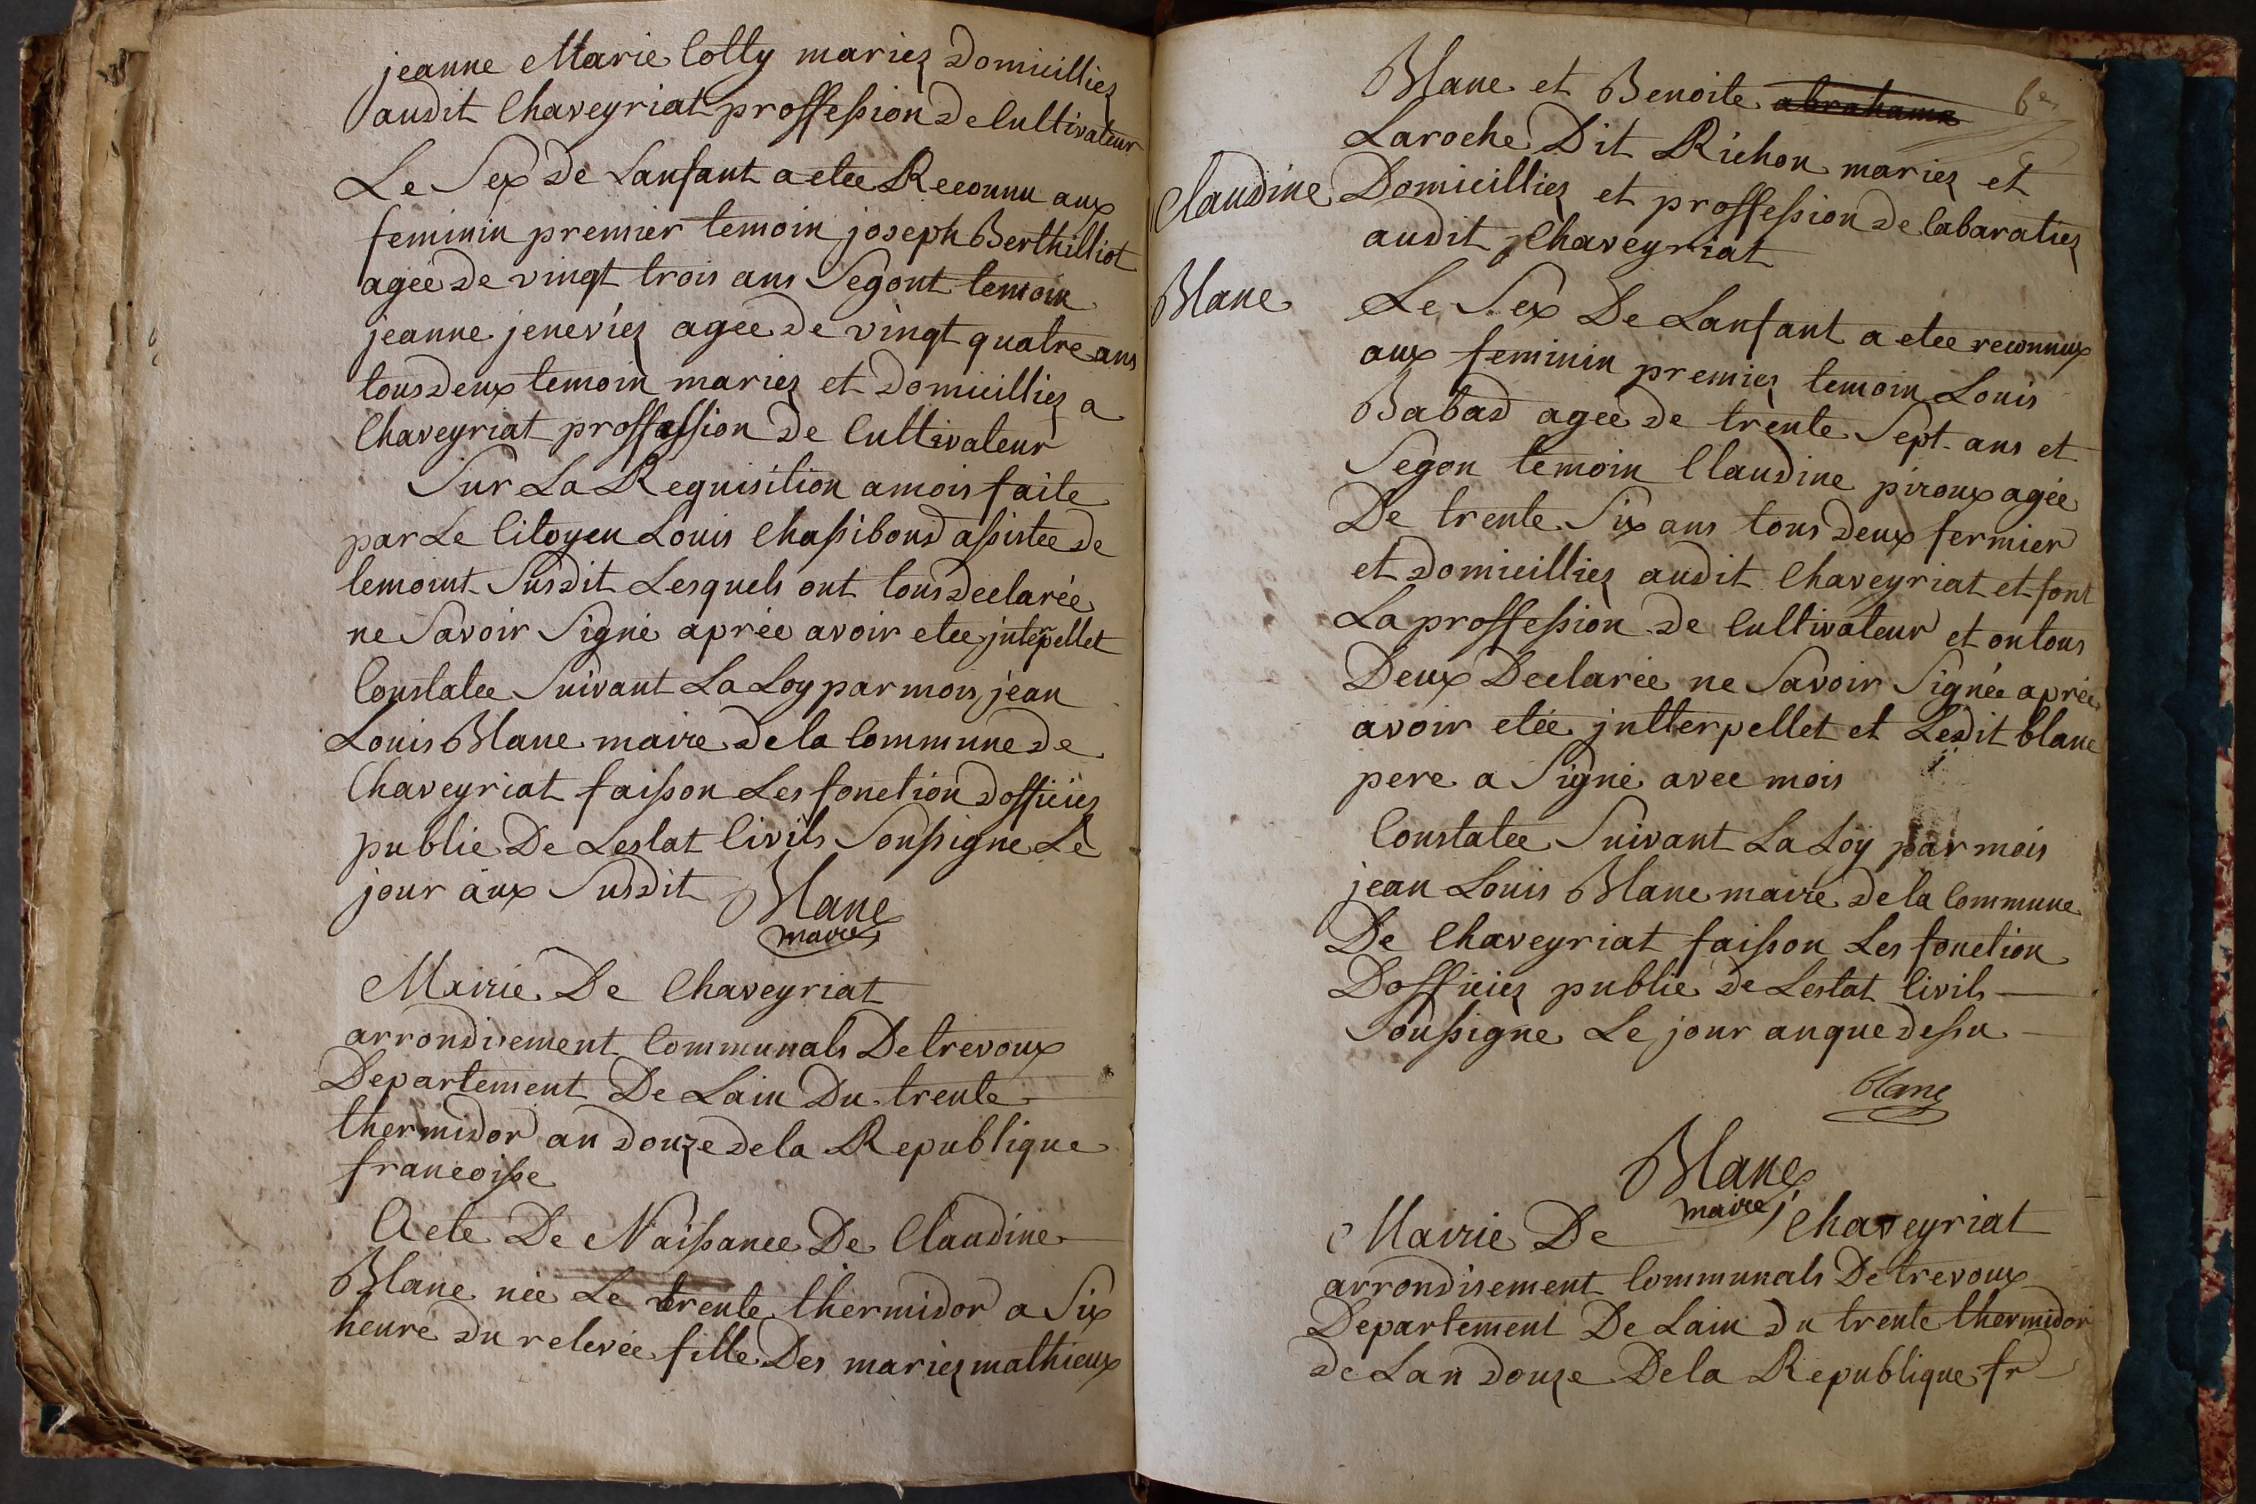 jeanne Marie Colly mariez Domicilliez
audit Chaveyriat proffession de Cultivateur
Le Sex de Lanfant a etee Reconnu aux
feminin premier temoin joseph Berthilliot
agée de vingt trois ans Segont temoin
jeanne jeneviez agee de vingt quatre ans
tous deux temoin mariez et Domicilliez a
Chaveyriat proffassion de Cultivateur
Sur La Requisition a mois faite
par Le Citoyen Louis Chassiboud assistee de
temoint Susdit Lesquels ont tous declarée
ne Savoir Signe aprée avoir etee jnterpellet
Constatee Suivant La Loy par mois jean
Louis Blanc maire de la Commune de
Chaveyriat faisson Les fonction dofficiez
public De Lestat Civils Soussigne Le
jour aux Susdit Blanc
maire
Mairie De Chaveyriat
arrondisement Communals De trevoux
Departement De Lain Du trente
thermidor an douze de la Republique
francoisse
Acte De Naissance De Claudine
Blanc née Le trente thermidor a Six
heure du relevée fille Des mariez mathieux
Blanc et Benoite abrahame
Laroche Dit Richon mariez et
Claudine Domicilliez et proffession de Cabaratiez
audit Chaveyriat
Blanc Le Sex De Lanfant a etee reconnux
aux feminin premiez temoin Louis
Babad agée de trente Sept ans et
Segon temoin Claudine piroux agée
De trente Six ans tous deux fermier
et domicilliez audit Chaveyriat et font
La proffession de Cultivateur et on tous
Deux Declarée ne Savoir Signée aprée
avoir etée jntterpellet et Ledit blanc
pere a Signe avec mois
Constatee Suivant La Loy par mois
jean Louis Blanc maire de la Commune
De Chaveyriat faisson Les fonction
Dofficiez public de Lestat Civils
Soussigne Le jour anque dessu
blanc
Blanc
maire
Mairie De Chaveyriat
arrondisement Communals De trevoux
Departement De Lain du trente thermidor
de Lan douze De la Republique fr